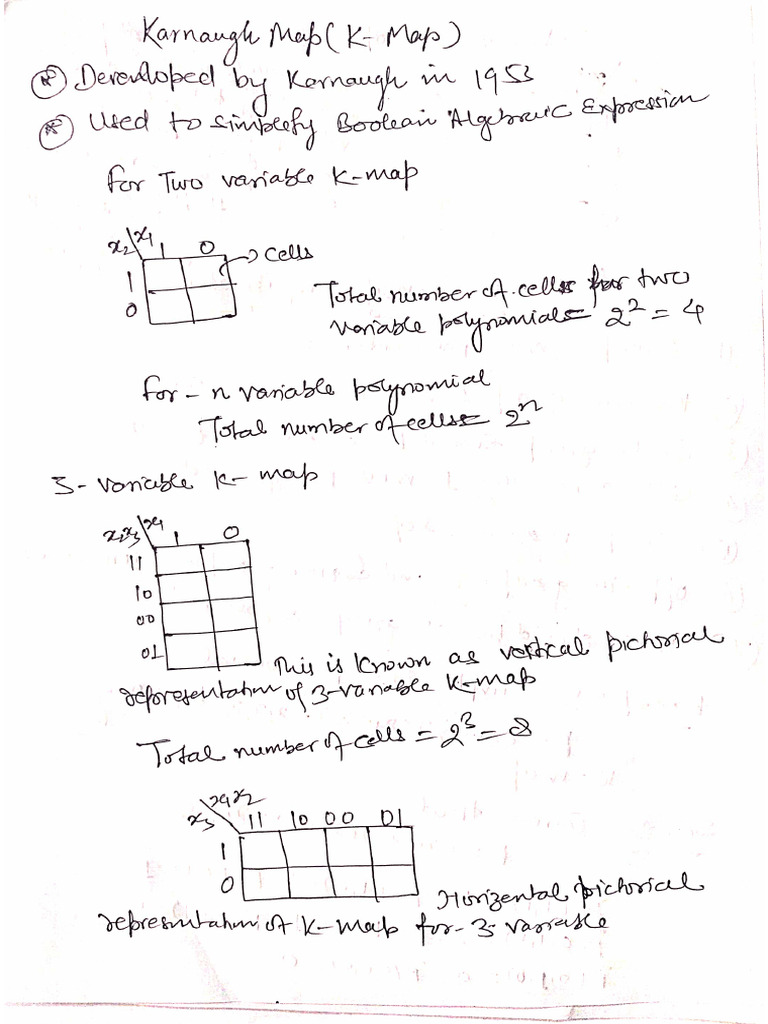 Karnaugh Map (K-Map)
* Developed by Karnaugh in 1953
* Used to simplify Boolean Algebraic Expression
for Two variable K-map
x2\x1 1 0 → cells
1
0
Total number of cells for two
variable polynomials = 2² = 4
for - n variable polynomial
Total number of cells = 2ⁿ
3-variable K-map
x2x3\x1 1 0
11
10
00
01
This is known as vertical pictorial
representation of 3-variable K-map
Total number of cells = 2³ = 8
x1x2
x3 11 10 00 01
1
0
Horizental pictorial
representation of K-map for - 3-variable